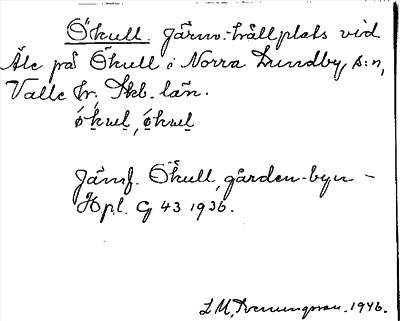 Ökull. Järnv.-hållplats vid
Åle på Ökull i Norra Lundby s:n,
Valle hr, Skb. län.
ökul, ökul
Jämf. Ökull, gården-byn -
Hpl. G 43 1936.
L M, Svenungsson. 1946.